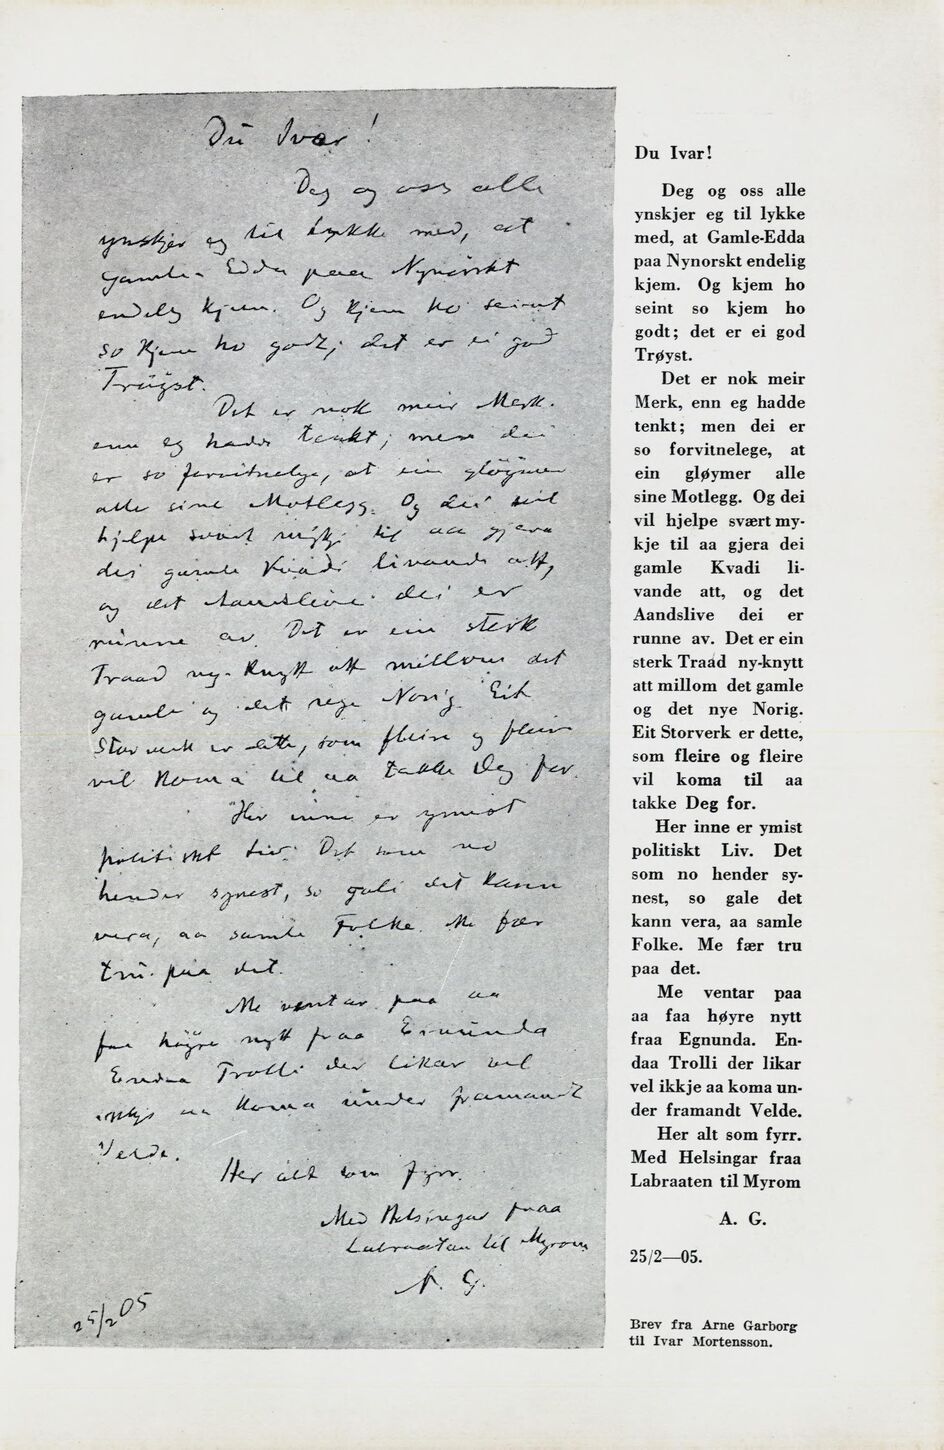 Du Ivar!
Deg og oss alle
ynskjer eg til Lykke med, at
Gamle-Edda paa Nynorskt
endeleg kjem. Og kjem ho seint
so kjem ho godt; det er ei god
Trøyst.
Det er nok meir Merk.
enn eg hadde tenkt; men dei
er so forvitnelege, at ein gløymer
alle sine Motlegg. Og dei vil
hjelpe svært mykje til aa gjera
dei gamle Kvadi livande att,
og det Aandslive dei er
runne av. Det er ein sterk
Traad ny-knytt att millom det
gamle og det nye Norig. Eit
Storverk er dette, som fleire og fleire
vil koma til aa takke Deg for.
Her inne er ymist
politiskt Liv. Det som no
hender synest, so gali det kann
vera, aa samle Folke. Me fær
tru paa det.
Me ventar paa aa
faa høyre nytt fraa Egnunda
Endaa Trolli der likar vel
ikkje aa koma under framandt
Velde.
Her alt som fyrr.
Med Helsingar fraa
Labraaten til Myrom
A. G.
25/2 05
Du Ivar!
Deg og oss alle
ynskjer eg til lykke
med, at Gamle-Edda
paa Nynorskt endelig
kjem. Og kjem ho
seint so kjem ho
godt; det er ei god
Trøyst.
Det er nok meir
Merk, enn eg hadde
tenkt; men dei er
so forvitnelege, at
ein gløymer alle
sine Motlegg. Og dei
vil hjelpe svært my-
kje til aa gjera dei
gamle Kvadi li-
vande att, og det
Aandslive dei er
runne av. Det er ein
sterk Traad ny-knytt
att millom det gamle
og det nye Norig.
Eit Storverk er dette,
som fleire og fleire
vil koma til aa
takke Deg for.
Her inne er ymist
politiskt Liv. Det
som no hender sy-
nest, so gale det
kann vera, aa samle
Folke. Me fær tru
paa det.
Me ventar paa
aa faa høyre nytt
fraa Egnunda. En-
daa Trolli der likar
vel ikkje aa koma un-
der framandt Velde.
Her alt som fyrr.
Med Helsingar fraa
Labraaten til Myrom
A. G.
25/2—05.
Brev fra Arne Garborg
til Ivar Mortensson.